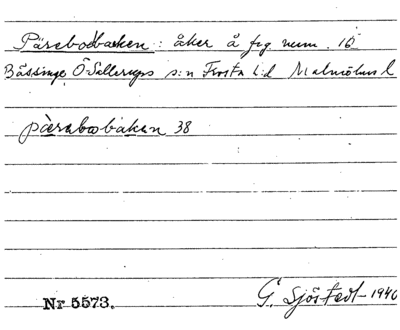 Päreboabacken: åker å frg num. 16
Bässinge Ö Sallerups s:n Frosta h:d Malmöhus l
pærabobakan 38
Nr 5573.
G. Sjöstedt 1946